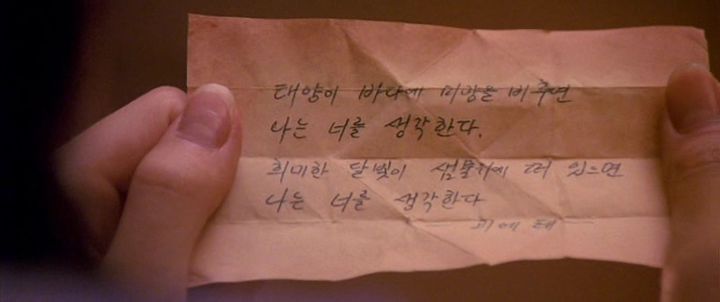 태양이 바다에 미광을 비추면
나는 너를 생각한다.
희미한 달빛이 샘물위에 떠 있으면
나는 너를 생각한다
괴에테